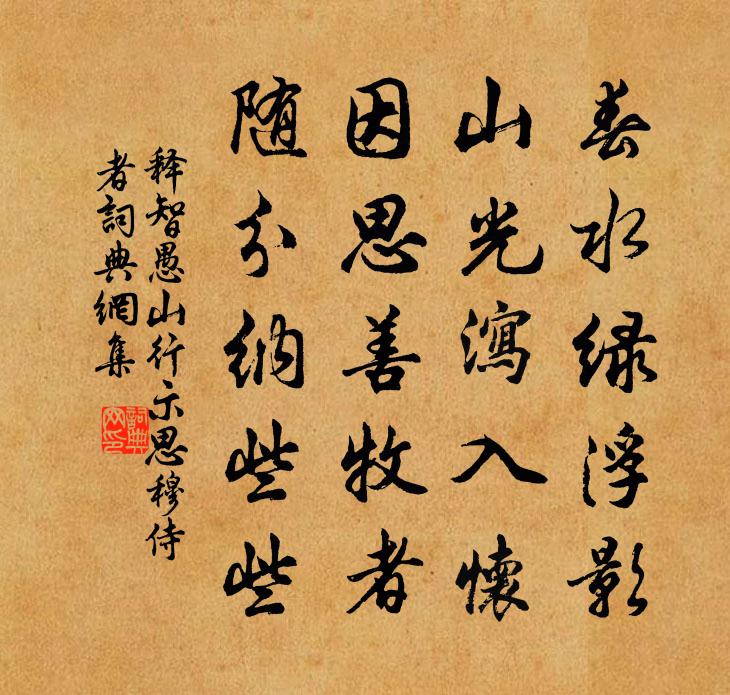 春水绿浮影
山光瀉入懷
因思善牧者
随分納些些
释智愚山行示思穆侍
者詞典網集
詞典网印